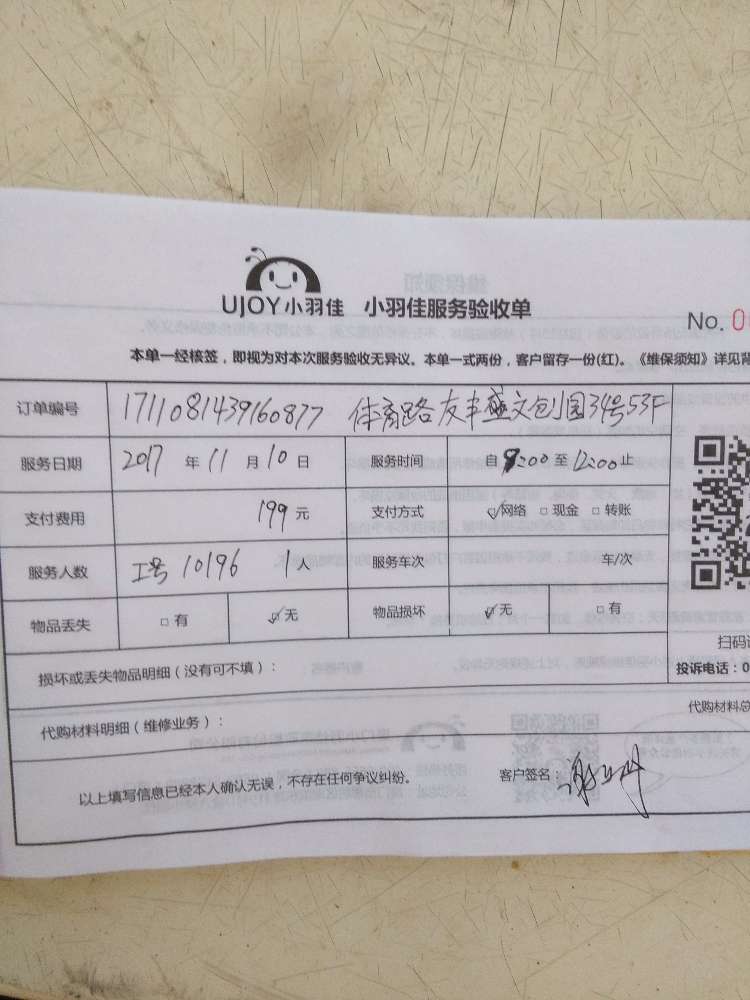 UJOY小羽佳 小羽佳服务验收单
No. 0
本单一经核签，即视为对本次服务验收无异议。本单一式两份，客户留存一份(红)。《维保须知》详见背
订单编号 1711081439160877 体育路友丰盛文创园34号53F
服务日期 2017 年 11 月 10 日 服务时间 自 9:00 至 12:00 止
支付费用 199 元 支付方式 ☑网络 □现金 □转账
服务人数 工号 10196 1人 服务车次 车/次
物品丢失 □有 ☑无 物品损坏 ☑无 □有
扫码
损坏或丢失物品明细（没有可不填）：
投诉电话：0
代购材料明细（维修业务）：
代购材料总
以上填写信息已经本人确认无误，不存在任何争议纠纷。
客户签名：